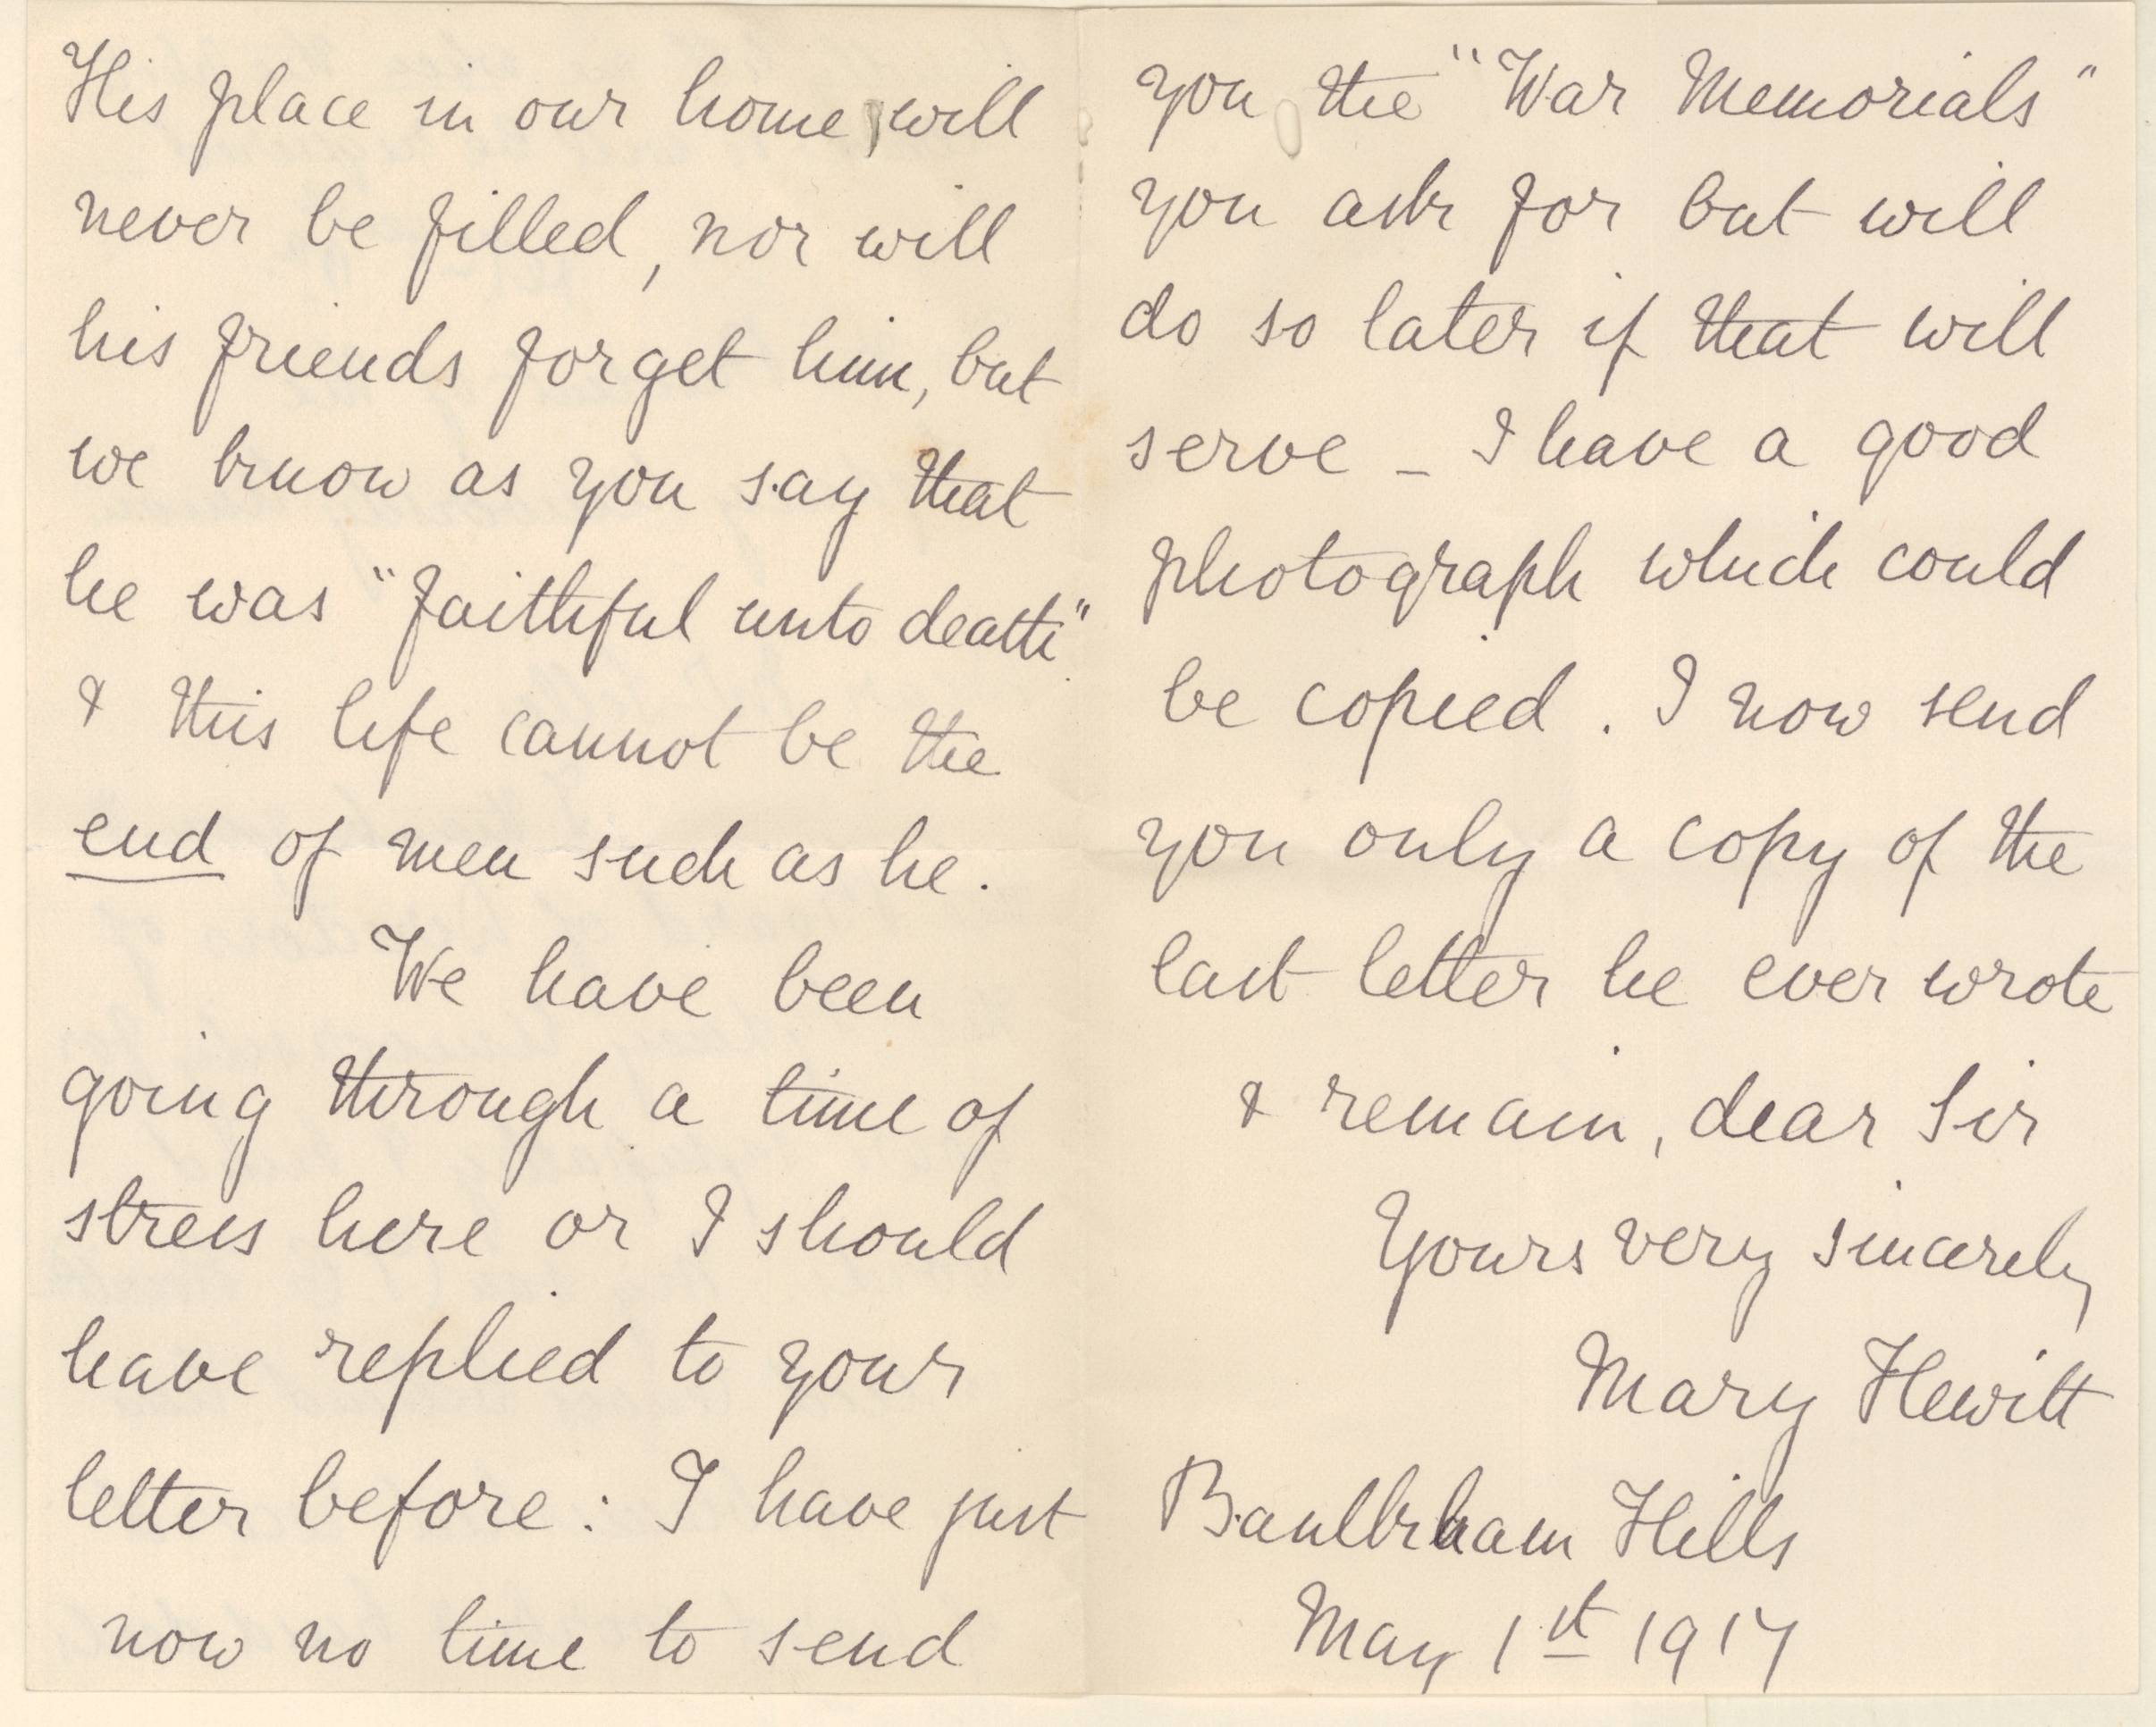 His place in our home, will
never be filled, nor will
his friends forget him, but
we know as you say that
he was "faithful unto death"
& this life cannot be the
end of men such as he.
We have been
going through a time of
stress here or I should
have replied to your
letter before: I have just
now no time to send
you the "War Memorials"
you ask for but will
do so later if that will
serve - I have a good
photograph which could
be copied. I now send
you only a copy of the
last letter he ever wrote
& remain, dear Sir
Yours very sincerely
Mary Hewitt
Baulkham Hills
May 1st 1917